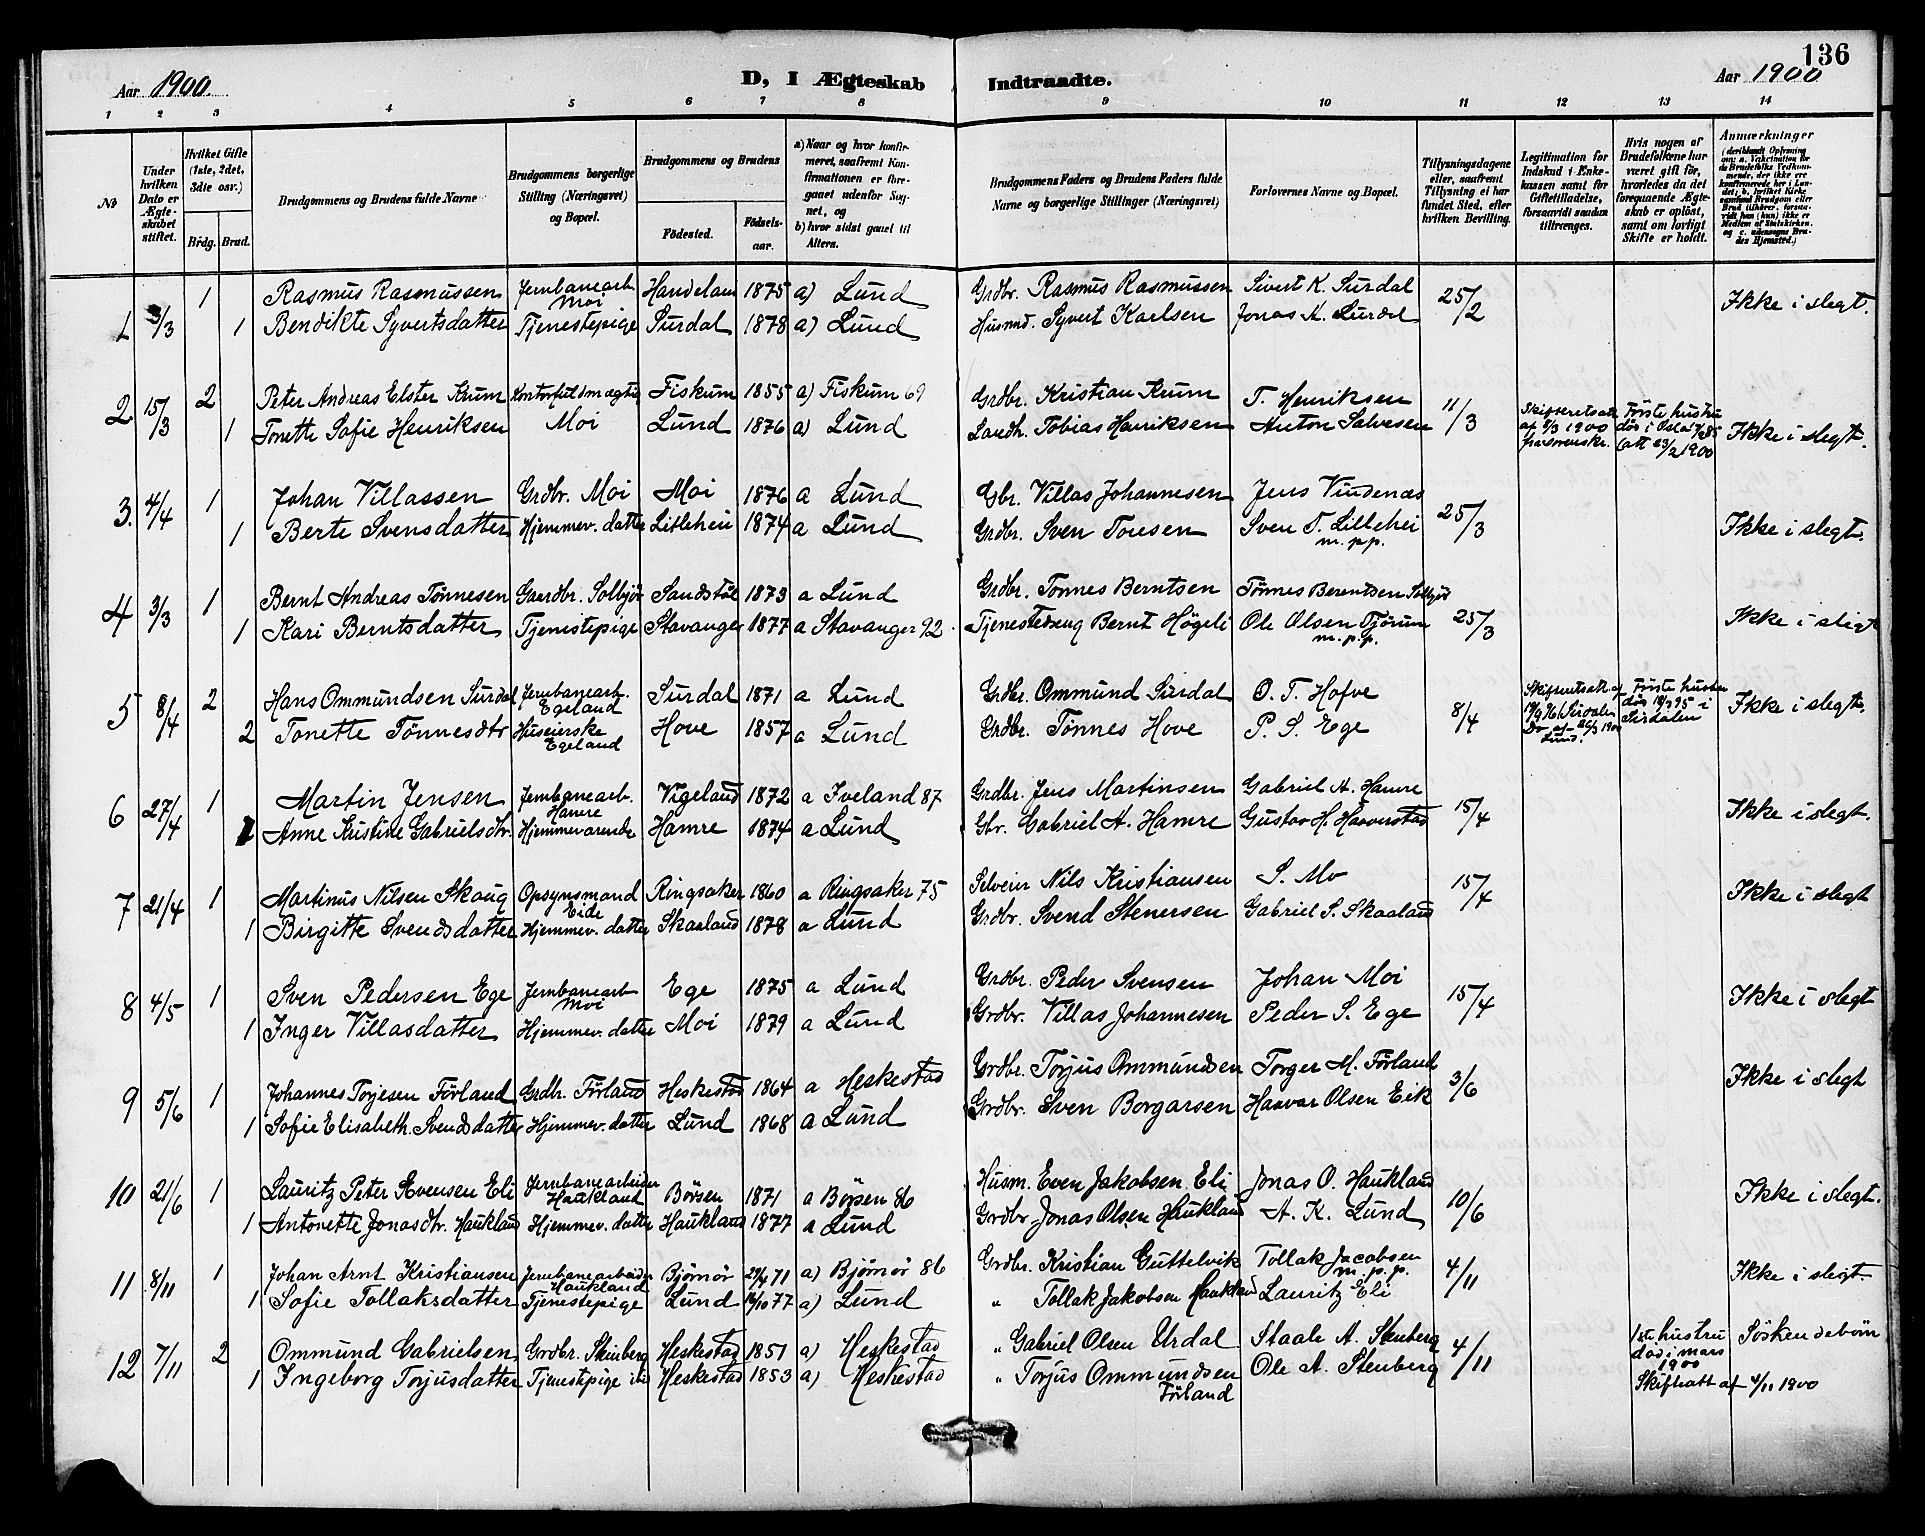 136
Aar 1900. D, I Ægteskab Indtraadte. Aar 1900
1 2 3 4 5 6 7 8 9 10 11 12 13 14
No
Under hvilken Dato er Ægteskabet stiftet.
Hvilket Gifte (1ste, 2det, 3die osv.)
Brdg. Brud.
Brudgommens og Brudens fulde Navne
Brudgommens borgerlige Stilling (Næringsvei) og Bopæl.
Brudgommens og Brudens
Födested. Födselsaar.
a) Naar og hvor konfirmeret, saafremt Konfirmationen er foregaaet udenfor Sognet, og
b) hvor sidst gaaet til Alters.
Brudgommens Faders og Brudens Faders fulde Navne og borgerlige Stillinger (Næringsvei)
Forlovernes Navne og Bopæl.
Tillysningsdagene eller, saafremt Tillysning ei har fundet Sted, efter hvilken Bevilling.
Legitimation for Indskud i Enkekassen samt for Giftetilladelse, forsaavidt saadan tiltrænges.
Hvis nogen af Brudefolkene har været gift för, hvorledes da det foregaaende Ægteskab er oplöst, samt om lovligt Skifte er holdt.
Anmærkninger
1 3/3 1 Rasmus Rasmussen Jernbanearb. Moi Handeland 1875 a) Lund Grdbr. Rasmus Rasmussen Sivert K. Surdal 25/2 Ikke i slegt.
1 Bendikte Syvertsdatter Tjenestepige Surdal 1878 a) Lund Husmd. Syvert Karlsen Jonas A. Surdal
2 15/3 2 Peter Andreas Elster Krum Kontorfuldmægtig Fiskum 1855 a) Fiskum 69 Grdbr. Kristian Krum T. Henriksen 11/3 Skifteretsatt. af 8/3 1900 Første hustru død i Oslo
1 Tonette Sofie Henriksen Moi Lund 1876 a) Lund Landh. Tobias Henriksen Anton Salvesen (att 23/2 1900 Ikke i slegt.
3. 4/4 1 Johan Villassen Grdbr. Moi Moi 1876 a Lund Gbr. Villas Johannesen Jens Vindenæs 25/3
1 Berte Svensdatter Hjemmev. datter Litlehei 1874 a Lund Grdbr. Sven Toresen Sven T. Lillehei m.p.p. Ikke i slegt.
4 3/3 1 Bernt Andreas Tönnesen Gaardbr. Solbjör Sandstöl 1873 a Lund Grdbr. Tönnes Berntsen Tönnes Berentsen Solbjör 25/3
1 Kari Berntsdatter Tjenestepige Stavanger 1877 a Stavanger 92. Tjenestedreng Bernt Högeli Ole Olsen Tjörum m.p.p. Ikke i slegt
5 8/4 2 Hans Ommundsen Surdal Jernbanearb. Egeland Surdal 1871 a Lund Grdbr. Ommund Surdal O. T. Hofve 8/4 Skifteretsatt. af Sirdalen Første hustru død i Sirdalen Ikke i slegt.
2 Tonette Tönnesdtr Huseierske Egeland Hove 1857 a Lund Grdbr. Tönnes Hove P. S. Ege Do af 26/3 1900 Lund.
6 27/4 1 Martin Jensen Jernbanearb. Hamre Vigeland 1872 a Iveland 87 Grdbr. Jens Martinsen Gabriel A. Hamre 15/4 Ikke i slegt.
1 Anne Kristine Gabrielsdtr. Hjemmevarende Hamre 1874 a Lund Gbr. Gabriel A. Hamre Gustav H. Haaverstad
7 21/4 1 Martinus Nilsen Skaug Opsynsmand Eide Ringsaker 1860 a Ringsaker 75 Selveier Nils Kristiansen S. Mo 15/4 Ikke i slegt
1 Birgitte Svendsdatter Hjemmev. datter Skaaland 1878 a Lund Grdbr. Svend Stenersen Gabriel S. Skaaland
8 4/5 1 Sven Pedersen Ege Jernbanearb Moi Ege 1875 a Lund Grdbr. Peder Svensen Johan Moi 15/4 Ikke i slegt
1 Inger Villasdatter Hjemmev. datter Moi 1879 a Lund Grdbr. Villas Johannesen Peder S. Ege
9 5/6 1 Johannes Torjesen Förland Grdbr. Förland Heskestad 1864 a Heskestad Grdbr. Torjus Ommundsen Torger M. Förland 3/6 Ikke i slegt
1 Sofie Elisabeth. Svendsdatter Hjemmev. datter Lund 1868 a Lund Grdbr. Sven Borgarsen Haavar Olsen Eik
10 21/6 1 Lauritz Peter Evensen Eli Jernbanearbeider Haukland Börsen 1871 a Börsen 86 Husm. Even Jakobsen Eli Jonas O. Haukland 10/6 Ikke i slegt.
1 Antonette Jonasdtr. Haukland Hjemmev. datter Haukland 1877 a Lund Grdbr Jonas Olsen Haukland A. K. Lund
11 8/11 1 Johan Arnt Kristiansen Jernbanearbeider Haukland Bjørnør 29/4 71 a) Bjørnør 86 Grdbr. Kristian Guttelvik Tollak Jacobsen m.p.p. 4/11 Ikke i slegt.
1 Sofie Tollaksdatter Tjenestepige Lund 14/10 77 a) Lund " Tollak Jakobsen Haukland Lauritz Eli
12 7/11 2 Ommund Gabrielsen Grdbr. Stenberg Heskestad 1851 a) Heskestad " Gabriel Olsen Urdal Staale A. Stenberg 4/11 1ste hustru död i mars 1900 Söskendebörn
1 Ingeborg Torjusdatter Tjenestpige ibid Heskestad 1853 a) Heskestad " Torjus Ommundsen Förland Ole A. Stenberg Skifteatt af 4/11 1900